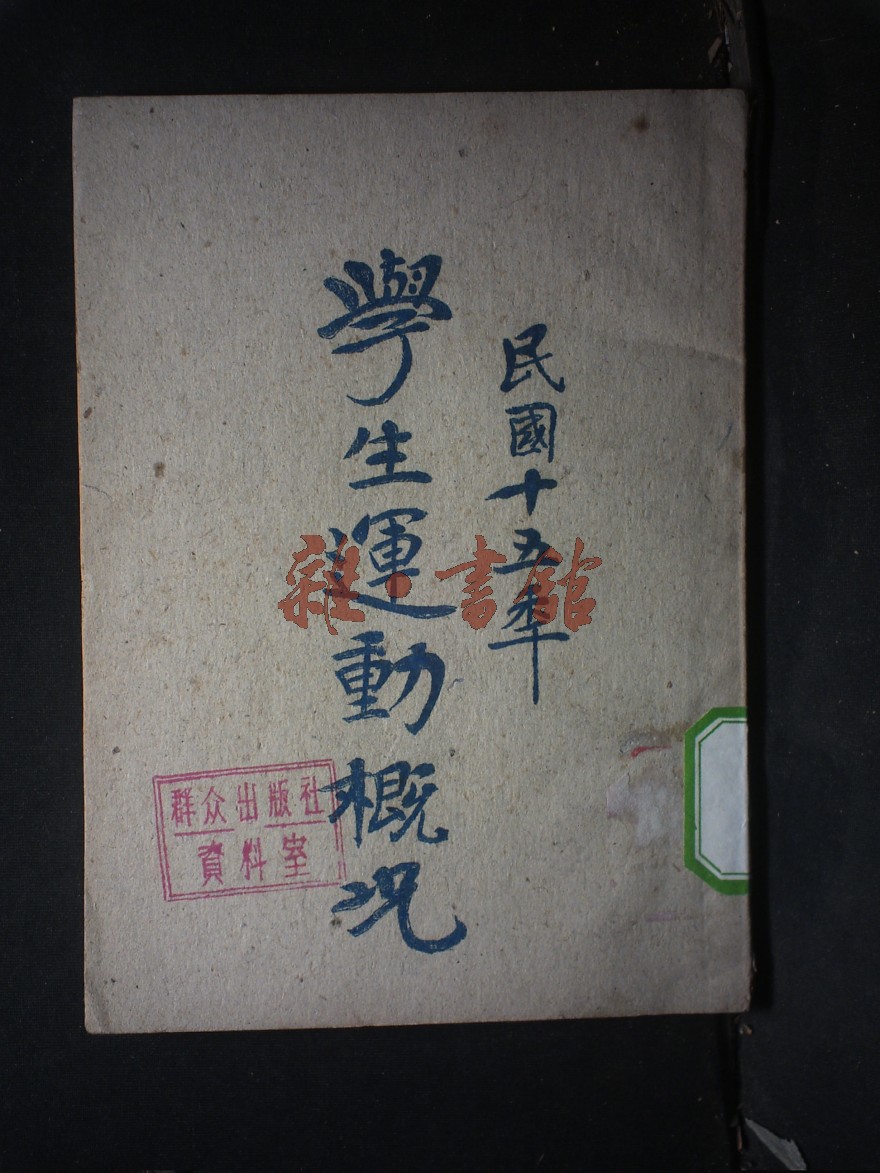 民國十五秊
學生運動概况
雜·書館
群众出版社
資料室